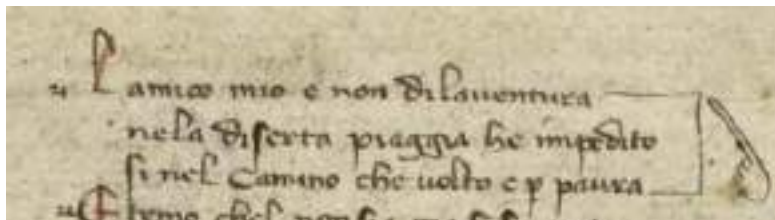 L amico mio e non dilauentura
nela diserta piaggia he impedito
si nel Camino che uolto e p paura